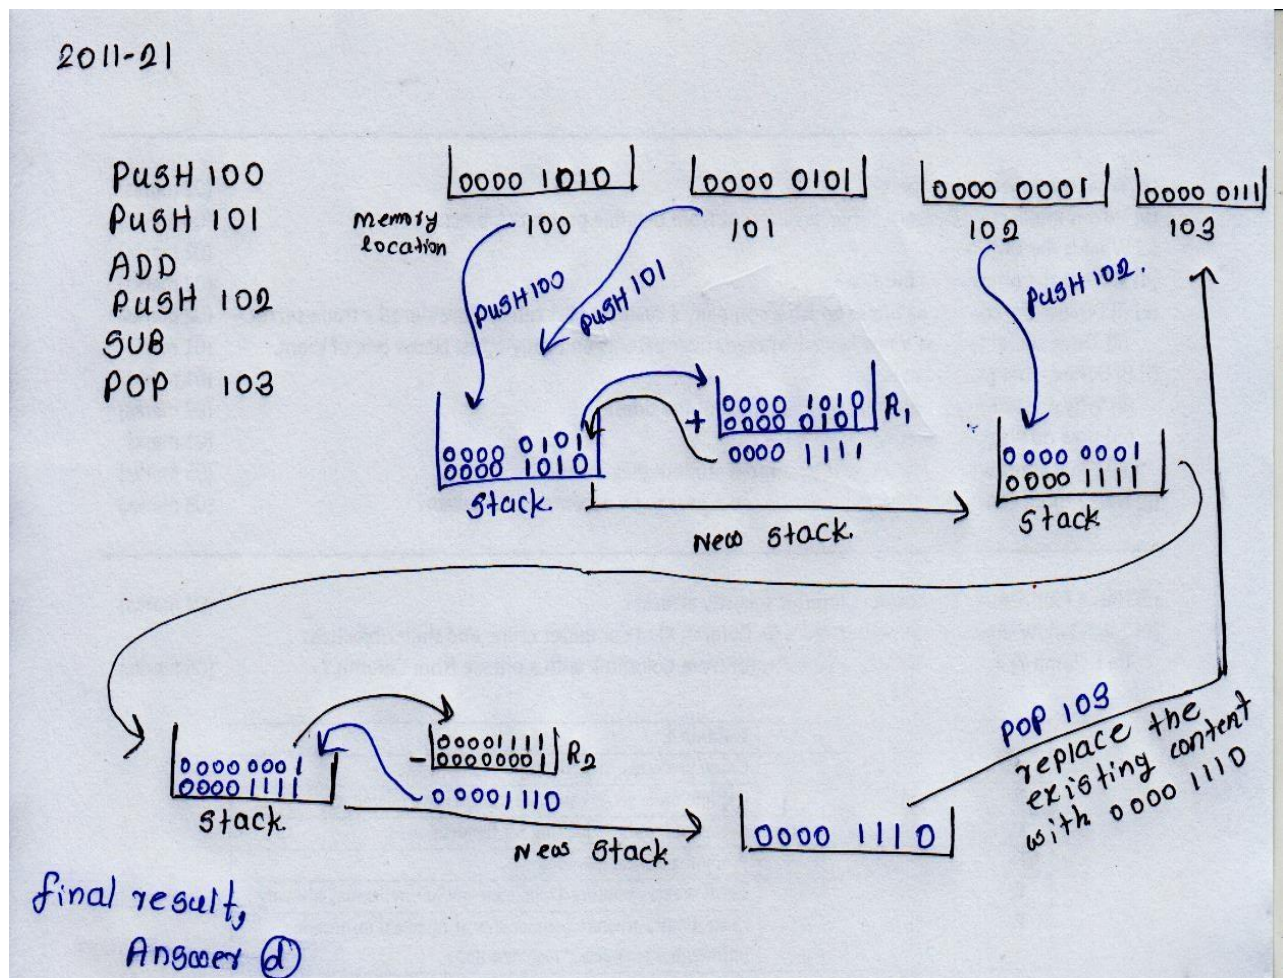 2011-21
PUSH 100
PUSH 101
ADD
PUSH 102
SUB
POP 103
0000 1010
0000 0101
0000 0001
0000 0111
memory
location
100
101
102
103
PUSH 100
PUSH 101
PUSH 102.
0000 0101
0000 1010
Stack.
0000 1010
+ 0000 0101 R1
0000 1111
New Stack.
0000 0001
0000 1111
Stack
0000 0001
0000 1111
Stack
00001111
- 00000001 R2
00001110
New Stack
0000 1110
POP 103
replace the
existing content
with 0000 1110
final result,
Answer d